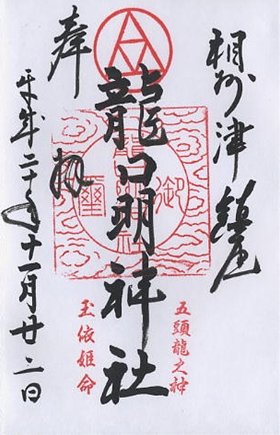 相州津鎮座
奉拝
龍口明神社
五頭龍之神
玉依姫命
平成二十年十一月廿二日